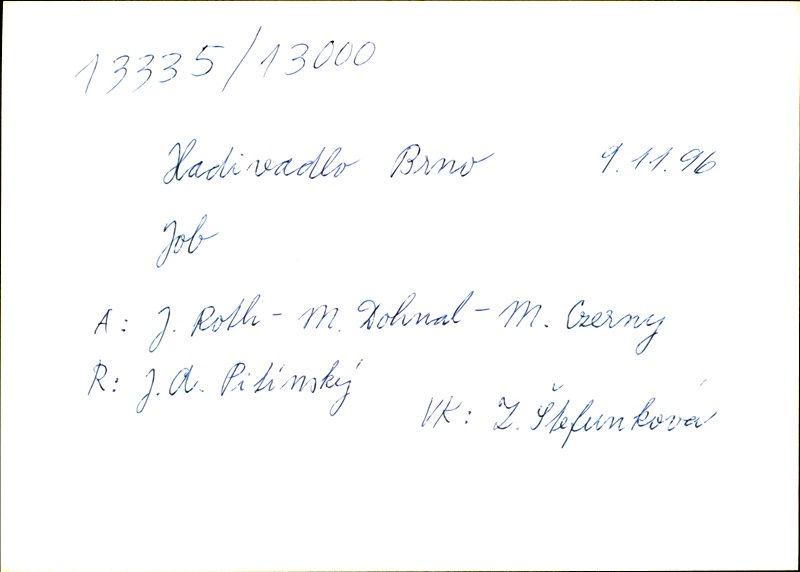 13335/13000
Hadivadlo Brno 9.11.96
Job
A: J. Roth - M. Dohnal - M. Czerny
R: J. A. Pitínský
VK: Z. Štefunková